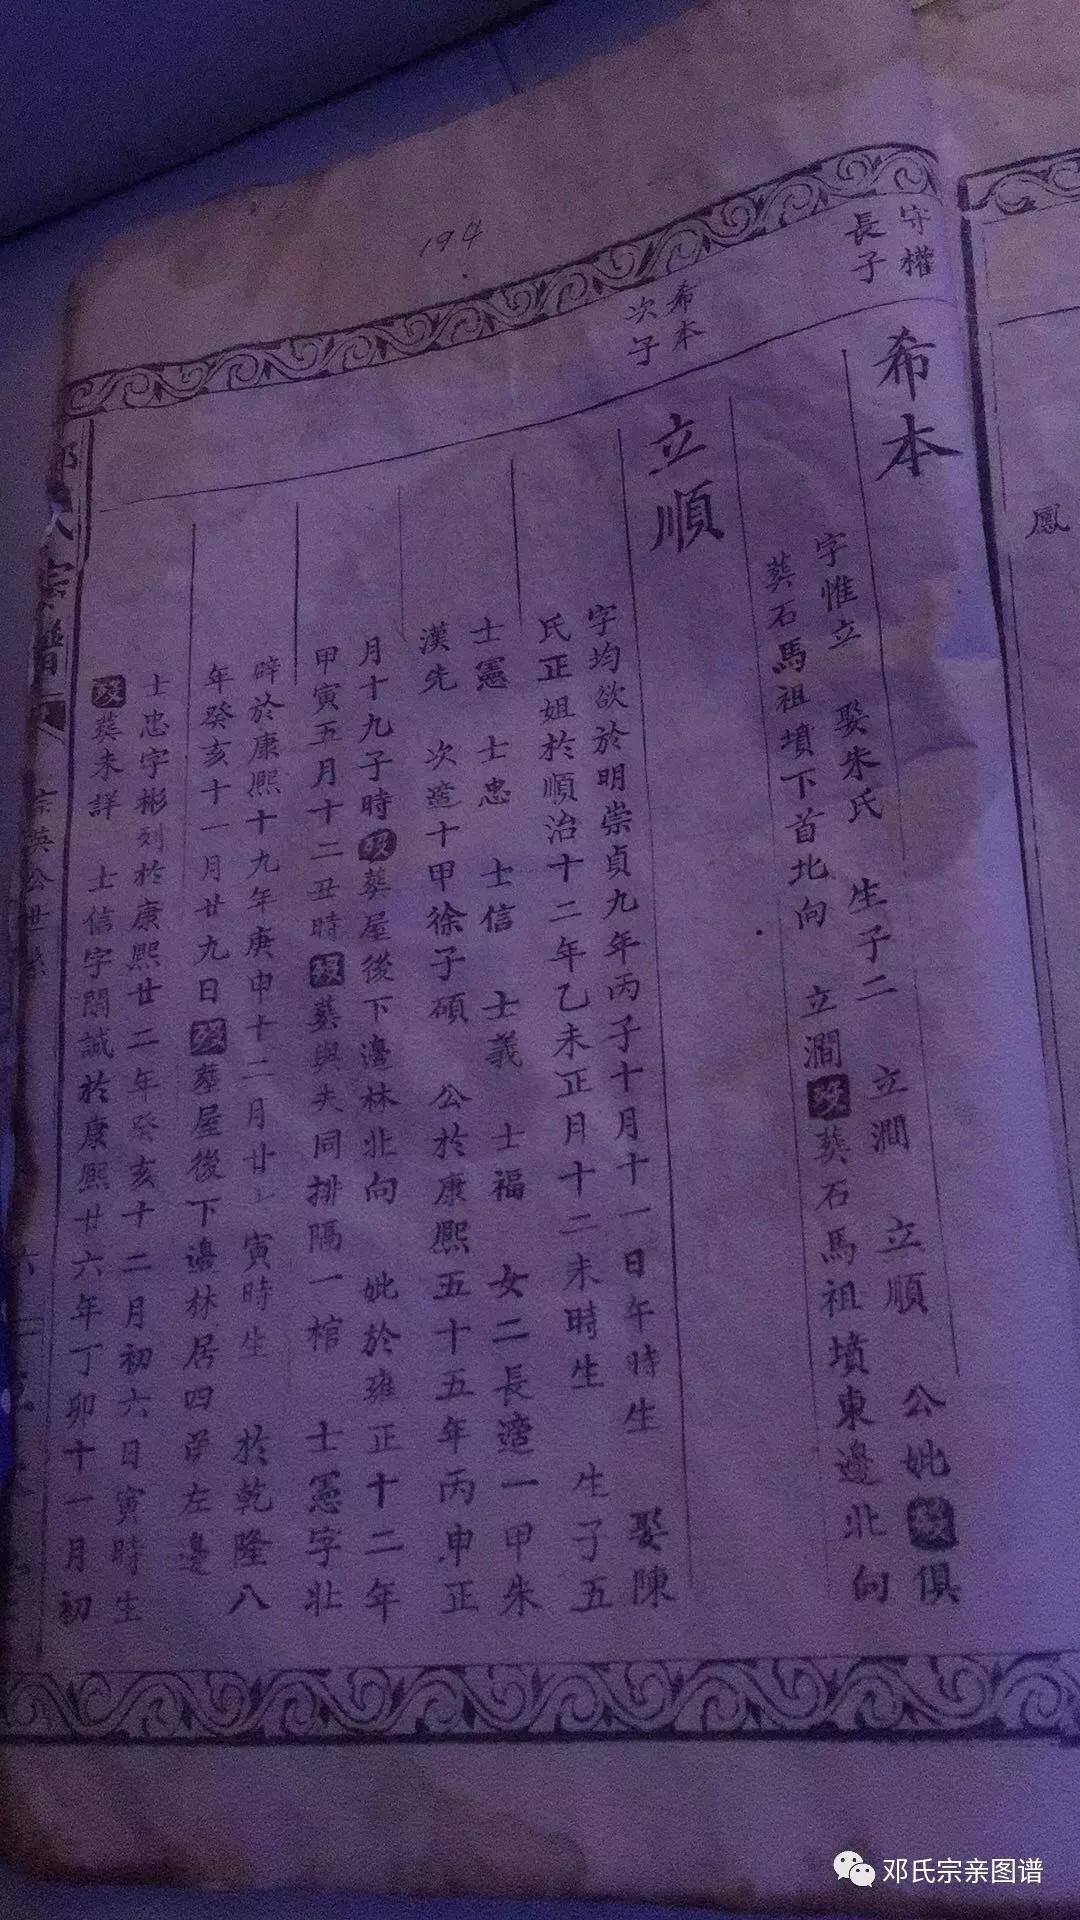 鳳
守權
長子
希本
字惟立 娶朱氏 生子二 立澗 立順 公妣歿俱
葬石馬祖墳下首北向 立澗歿葬石馬祖墳東邊北向
希本
次子
立順
字均欲於明崇貞九年丙子十月十一日午時生 娶陳
氏正姐於順治十二年乙未正月十二未時生 生子五
士憲 士忠 士信 士義 士福 女二長適一甲朱
漢先 次適十甲徐子碩 公於康熙五十五年丙申正
月十九子時歿葬屋後下邊林北向 妣於雍正十二年
甲寅五月十二丑時歿葬與夫同排隔一棺 士憲字壯
辟於康熙十九年庚申十二月廿 寅時生 於乾隆八
年癸亥十一月廿九日歿葬屋後下邊林居四 左邊
士忠字彬列於康熙廿二年癸亥十二月初六日寅時生
歿葬未詳 士信字閣誠於康熙廿六年丁卯十一月初
194
宗譜
宗英公世系
邓氏宗亲图谱